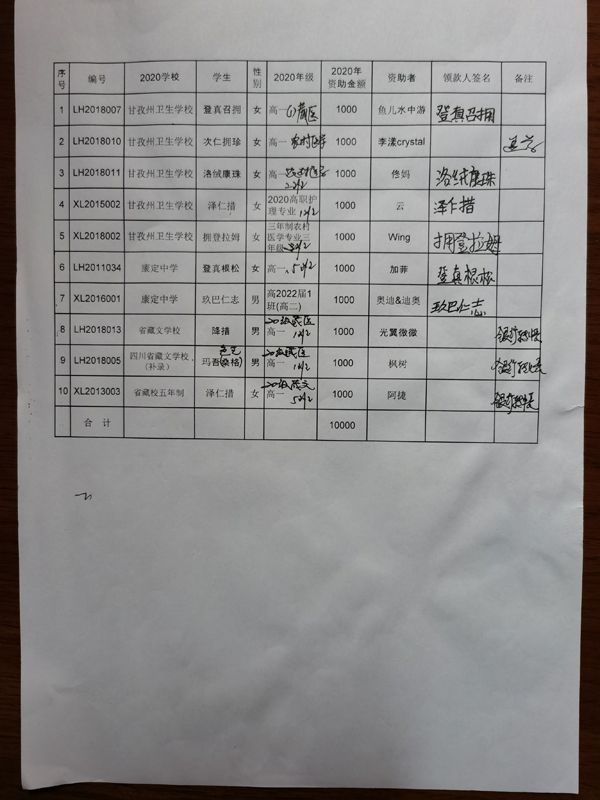 序号 编号 2020学校 学生 性别 2020年级 2020年资助金额 资助者 领款人签名 备注
1 LH2018007 甘孜州卫生学校 登真召拥 女 高一 (1)藏医 1000 鱼儿水中游 登真召拥
2 LH2018010 甘孜州卫生学校 次仁拥珍 女 高一 农村医学 1000 李漾crystal
3 LH2018011 甘孜州卫生学校 洛绒康珠 女 高一 1000 佟妈 洛绒康珠
4 XL2015002 甘孜州卫生学校 泽仁措 女 2020高职护理专业 1000 云 泽仁措
5 XL2018002 甘孜州卫生学校 拥登拉姆 女 三年制农村医学专业三年级 1000 Wing 拥登拉姆
6 LH2011034 康定中学 登真根松 女 高一 1000 加菲 登真根松
7 XL2016001 康定中学 玖巴仁志 男 高2022届1班(高二) 1000 奥迪&迪奥 玖巴仁志
8 LH2018013 省藏文学校 降措 男 高一 20级藏医 1000 光翼微微
9 LH2018005 四川省藏文学校,(补录) 玛吾(桑格) 男 高一 20级藏医 1000 枫树
10 XL2013003 省藏校五年制 泽仁措 女 高一 20级藏文 1000 阿捷
合 计 10000